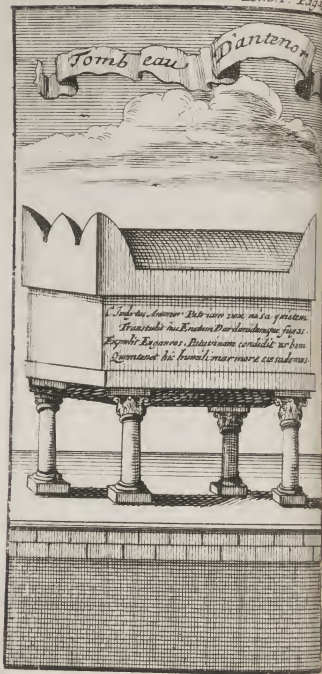 Tom. I. Pag
Tombeau D'antenor
C. Inclitus Antenor Patriam vox nisa quietem
Transtulit huc Enetum Dardanidumque fugas.
Expulit Euganeos, Patavinam condidit urbem
Quem tenet hic humili marmore cæsa domus.